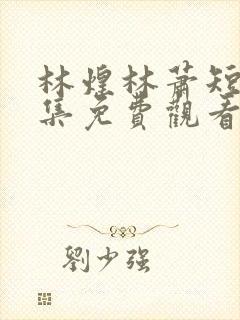 林煌林蕭短
集免費觀看
劉少強